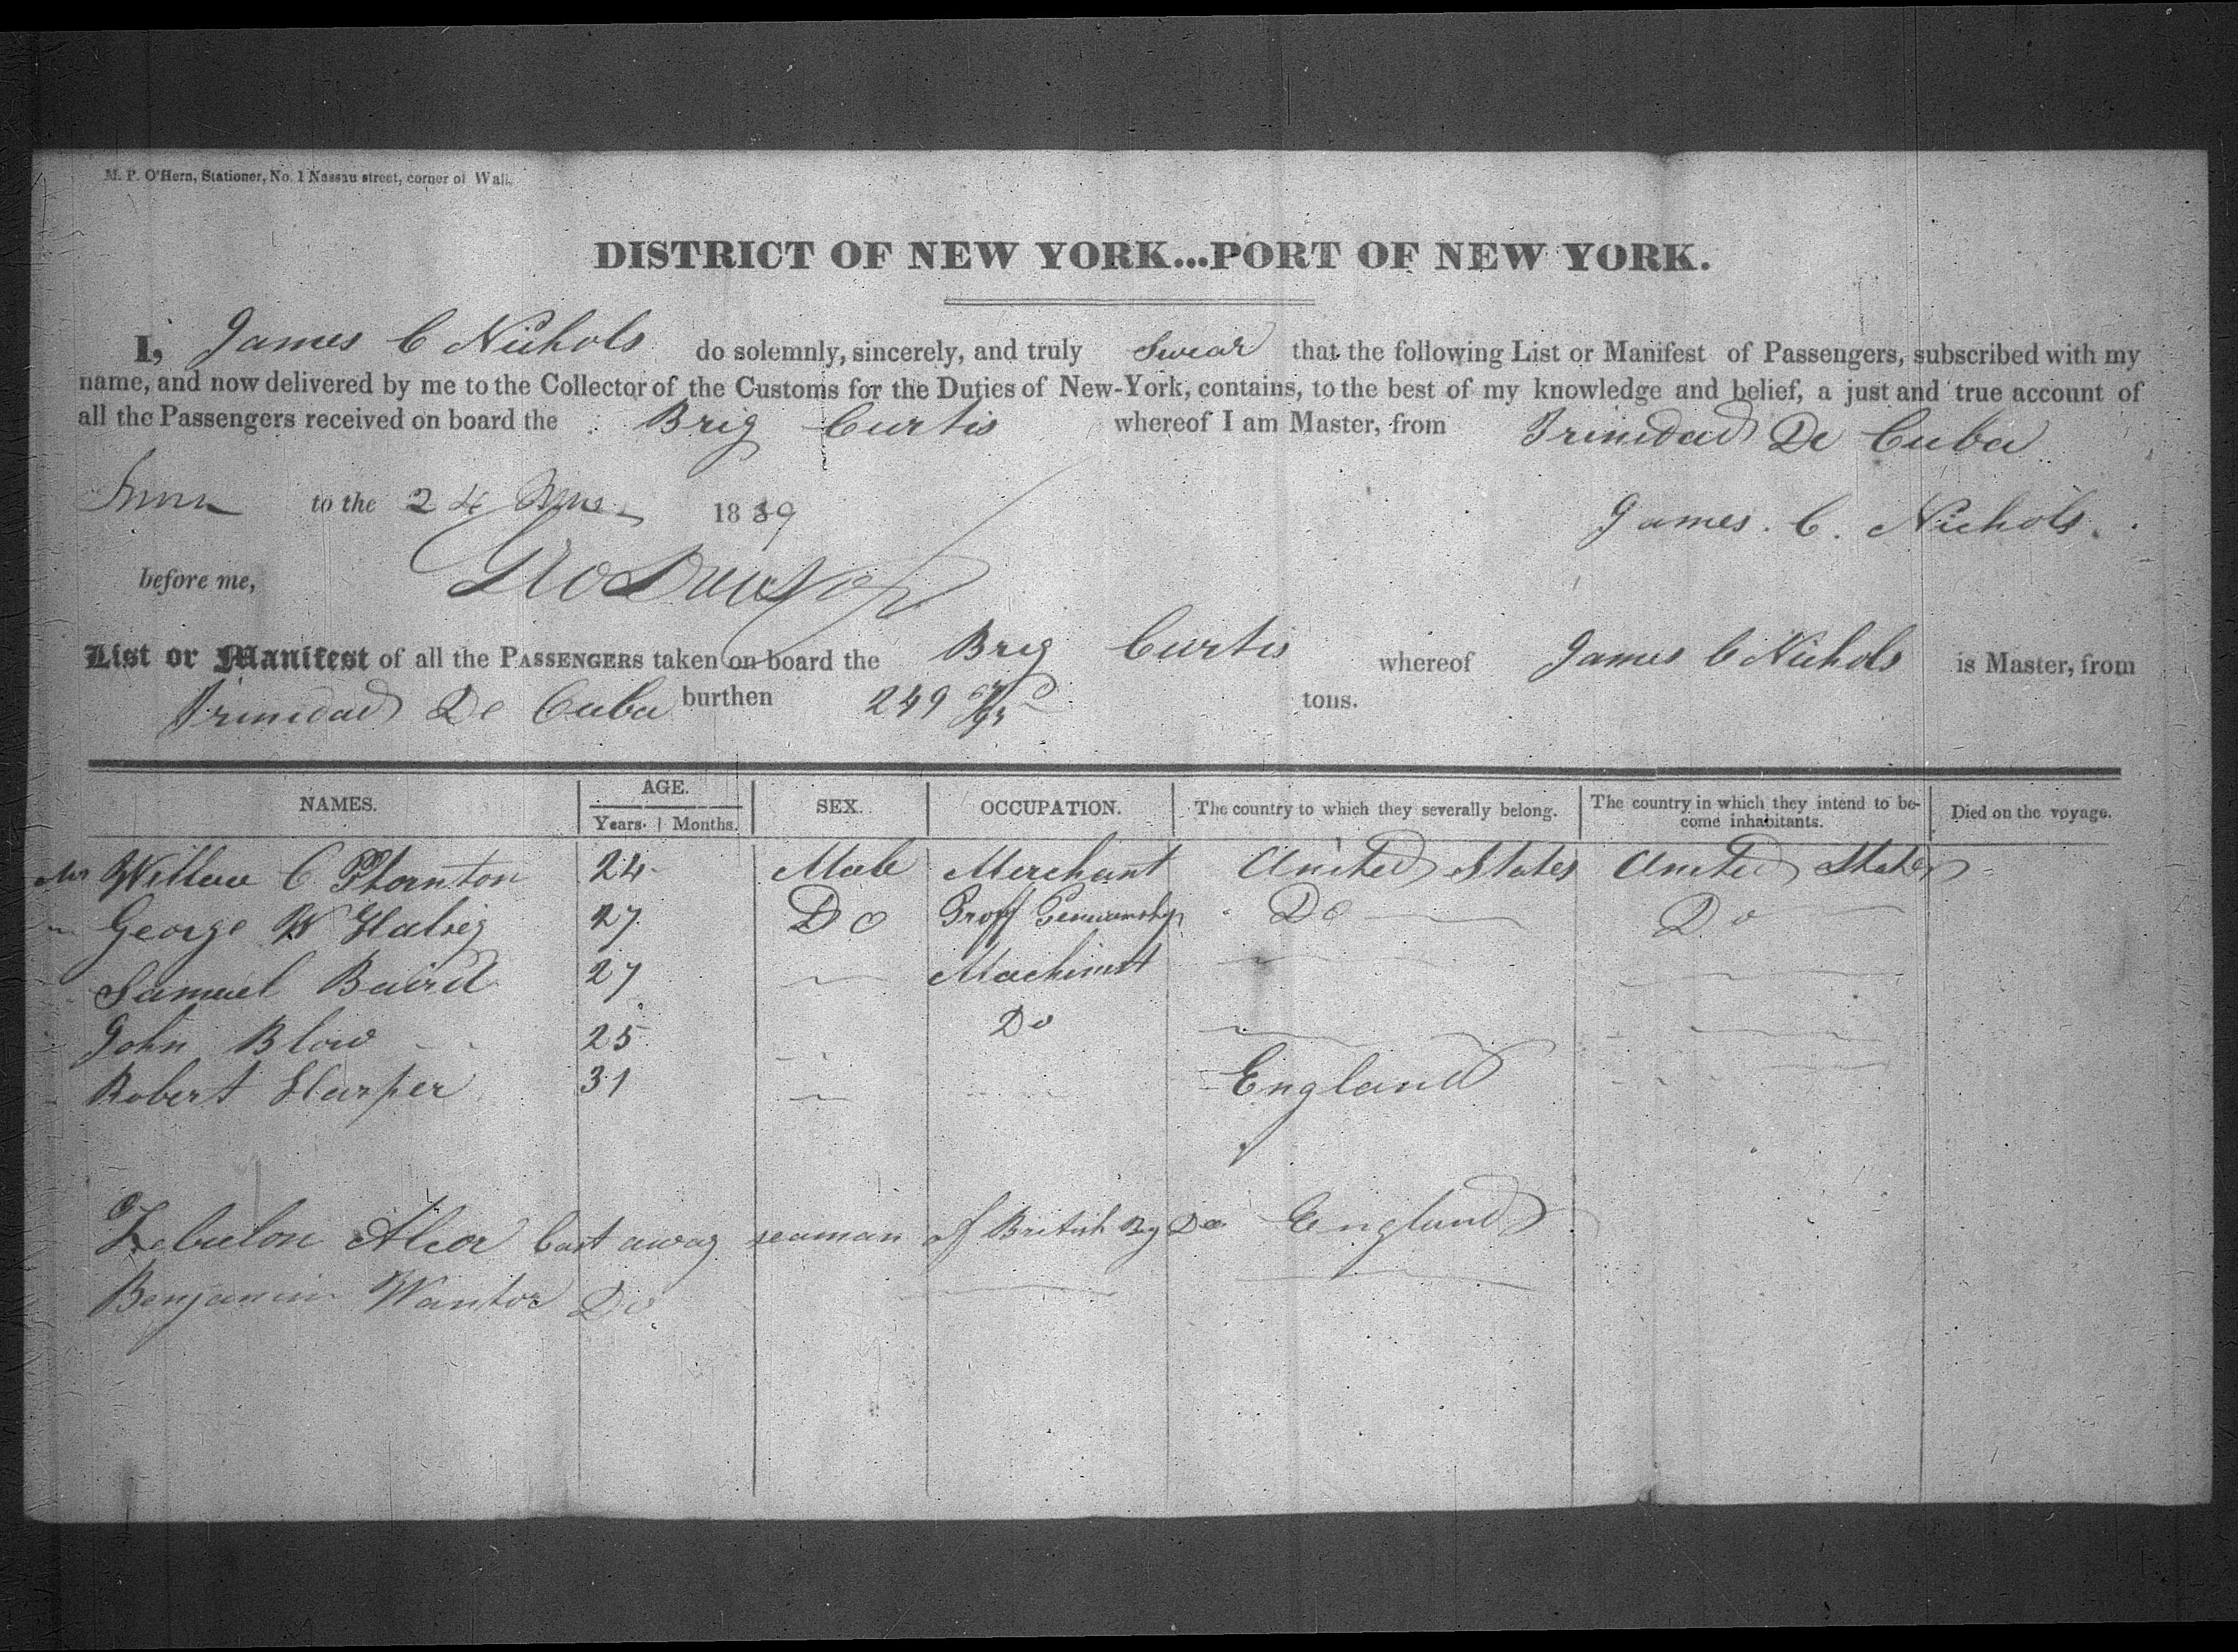 M. P. O'Hern, Stationer, No. 1 Nassau street, corner of Wall.
DISTRICT OF NEW YORK...PORT OF NEW YORK.
I, James C Nichols do solemnly, sincerely, and truly Swear that the following List or Manifest of Passengers, subscribed with my
name, and now delivered by me to the Collector of the Customs for the Duties of New-York, contains, to the best of my knowledge and belief, a just and true account of
all the Passengers received on board the Brig Curtis whereof I am Master, from Trinidad De Cuba
Sworn to the 24 1839 James. C. Nichols.
before me,
List or Manifest of all the PASSENGERS taken on board the Brig Curtis whereof James C Nichols is Master, from
Trinidad De Cuba burthen 249 tons.
NAMES. AGE. SEX. OCCUPATION. The country to which they severally belong. The country in which they intend to be-come inhabitants. Died on the voyage.
Years. Months.
Mr C Thornton 24 Male Merchant United States United States
George W Halsey 27 Do Proff Penmanship Do Do
Samuel Baird 27 Machinist
John Blow 25 Do
Robert Harper 31 England
Zebulon Cast away seaman of British Brig England
Benjamin Do